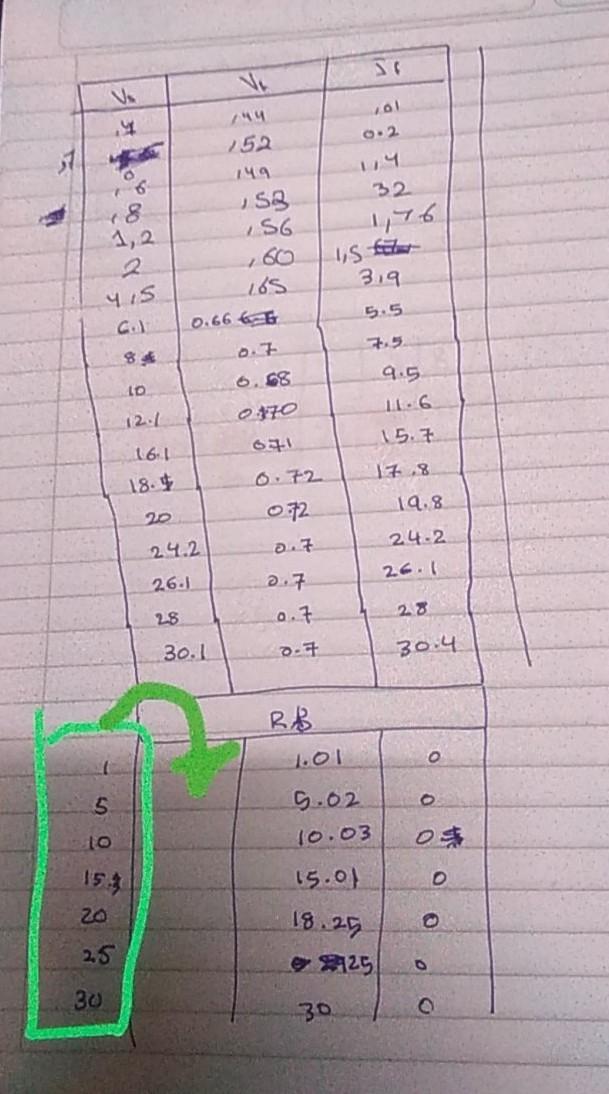 Vs Vf If
,4 ,44 ,01
,52 0.2
,6 ,49 1,4
,8 ,53 32
1,2 ,56 1,76
2 ,60 1,5
4,5 ,65 3,9
6.1 0.66 5.5
8 0.7 7.5
10 0.68 9.5
12.1 0.70 11.6
16.1 0.71 15.7
18. 0.72 17.8
20 0.72 19.8
24.2 0.7 24.2
26.1 0.7 26.1
28 0.7 28
30.1 0.7 30.4
RB
1 1.01 0
5 5.02 0
10 10.03 0
15 15.01 0
20 18.25 0
25 25 0
30 30 0